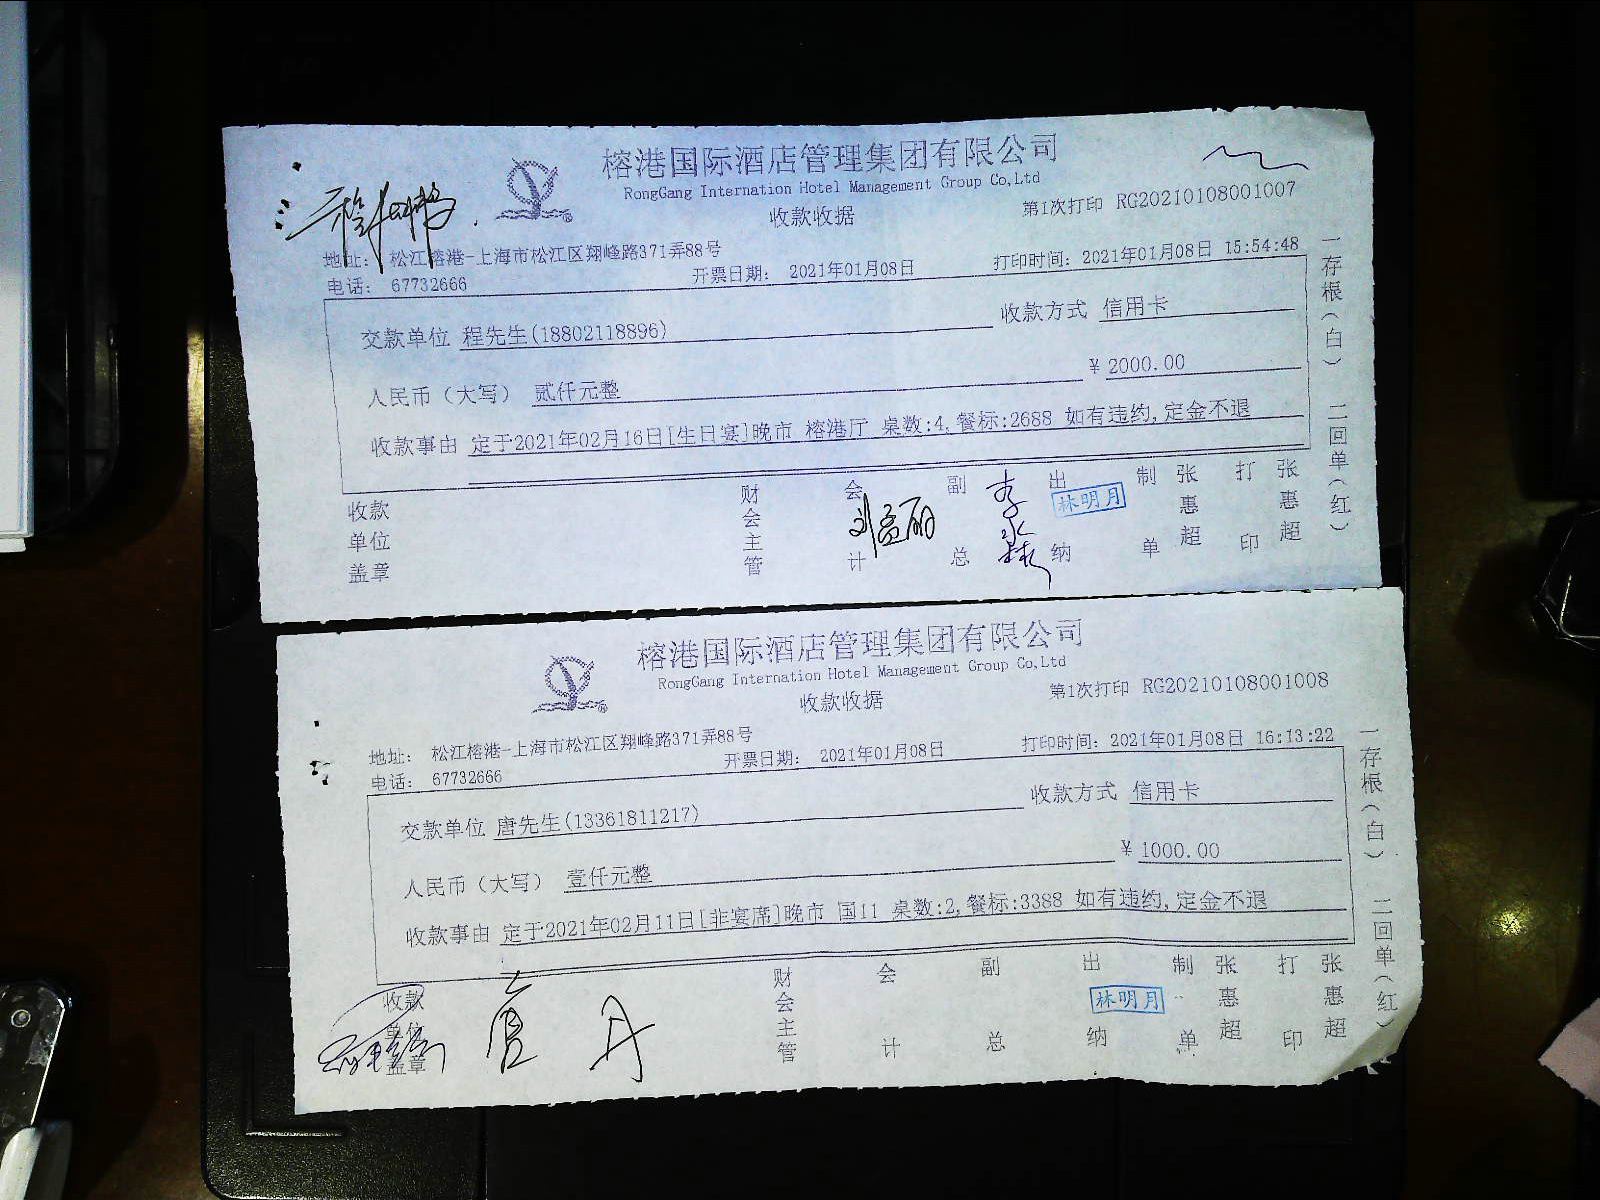 榕港国际酒店管理集团有限公司
RongGang Internation Hotel Management Group Co,Ltd
收款收据
第1次打印 RG20210108001007
地址: 松江榕港-上海市松江区翔峰路371弄88号
电话: 67732666
开票日期: 2021年01月08日
打印时间: 2021年01月08日 15:54:48
交款单位 程先生(18802118896)
收款方式 信用卡
人民币(大写) 贰仟元整
¥ 2000.00
收款事由 定于2021年02月16日[生日宴]晚市 榕港厅 桌数:4,餐标:2688 如有违约,定金不退
收款单位盖章
财会主管
会计
副总
出纳
林明月
制单
张惠超
打印
张惠超
一存根(白)
二回单(红)
榕港国际酒店管理集团有限公司
RongGang Internation Hotel Management Group Co,Ltd
收款收据
第1次打印 RG20210108001008
地址: 松江榕港-上海市松江区翔峰路371弄88号
电话: 67732666
开票日期: 2021年01月08日
打印时间: 2021年01月08日 16:13:22
交款单位 唐先生(13361811217)
收款方式 信用卡
人民币(大写) 壹仟元整
¥ 1000.00
收款事由 定于2021年02月11日[非宴席]晚市 国11 桌数:2,餐标:3388 如有违约,定金不退
收款单位盖章
财会主管
会计
副总
出纳
林明月
制单
张惠超
打印
张惠超
一存根(白)
二回单(红)